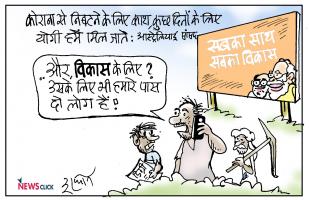 कोराना से निबटने के लिए काश, कुछ दिनों के लिए
योगी हमें मिल जाते : आस्ट्रेलियाई सांसद
सबका साथ
सबका विकास
और विकास के लिए?
उसके लिए भी हमारे पास
दो लोग हैं!
NEWSCLICK